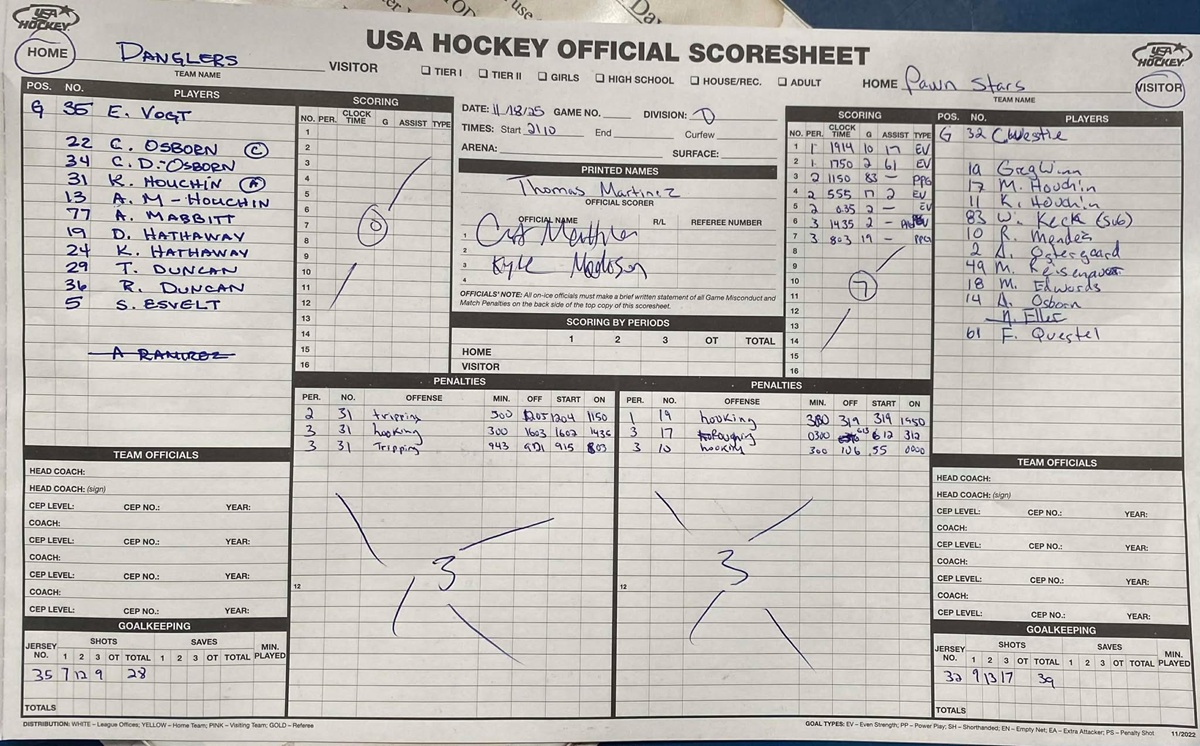 USA HOCKEY
USA HOCKEY OFFICIAL SCORESHEET
USA HOCKEY
HOME DANGLERS VISITOR
TEAM NAME
☐ TIER I ☐ TIER II ☐ GIRLS ☐ HIGH SCHOOL ☐ HOUSE/REC. ☐ ADULT
HOME Pawn Stars VISITOR
TEAM NAME
POS. NO. PLAYERS
G 35 E. VOGT
22 C. OSBORN C
34 C. D.-OSBORN
31 K. HOUCHIN A
13 A. M-HOUCHIN
77 A. MABBITT
19 D. HATHAWAY
24 K. HATHAWAY
29 T. DUNCAN
36 R. DUNCAN
5 S. ESVELT
A RAMIREZ
SCORING
NO. PER. CLOCK TIME G ASSIST TYPE
1
2
3
4
5
6
7
8
9
10
11
12
13
14
15
16
0
DATE: 11/18/25 GAME NO. DIVISION: D
TIMES: Start 2110 End Curfew
ARENA: SURFACE:
PRINTED NAMES
Thomas Martinez
OFFICIAL SCORER
OFFICIAL NAME R/L REFEREE NUMBER
1
2
3 Kyle
4
OFFICIALS' NOTE: All on-ice officials must make a brief written statement of all Game Misconduct and
Match Penalties on the back side of the top copy of this scoresheet.
SCORING BY PERIODS
1 2 3 OT TOTAL
HOME
VISITOR
SCORING
NO. PER. CLOCK TIME G ASSIST TYPE
1 1 1914 10 17 EV
2 1 1750 2 61 EV
3 2 1150 83 — PPG
4 2 555 17 2 EV
5 2 035 2 — EV
6 3 1435 2 —
7 3 803 19 — PPG
8
9
10
11
12
13
14
15
16
7
POS. NO. PLAYERS
G 32 C Westie
19 Greg Winn
17 M. Houchin
11 K. Houchin
83 W. Keck (sub)
10 R. Mendes
2 A. Ostergaard
49 M.
18 M. Edwards
14 A. Osborn
61 F. Questel
PENALTIES
PER. NO. OFFENSE MIN. OFF START ON
2 31 tripping 300 1205 1204 1150
3 31 hooking 300 1603 1602 1436
3 31 Tripping 943 921 915 803
12
3
PENALTIES
PER. NO. OFFENSE MIN. OFF START ON
1 19 hooking 300 319 319 1950
3 17 Roughing 0300 613 612 312
3 10 hooking 300 106 .55 0000
12
3
TEAM OFFICIALS
HEAD COACH:
HEAD COACH: (sign)
CEP LEVEL: CEP NO.: YEAR:
COACH:
CEP LEVEL: CEP NO.: YEAR:
COACH:
CEP LEVEL: CEP NO.: YEAR:
COACH:
CEP LEVEL: CEP NO.: YEAR:
GOALKEEPING
JERSEY NO. SHOTS SAVES MIN. PLAYED
1 2 3 OT TOTAL 1 2 3 OT TOTAL
35 7 12 9 28
TOTALS
TEAM OFFICIALS
HEAD COACH:
HEAD COACH: (sign)
CEP LEVEL: CEP NO.: YEAR:
COACH:
CEP LEVEL: CEP NO.: YEAR:
COACH:
CEP LEVEL: CEP NO.: YEAR:
COACH:
CEP LEVEL: CEP NO.: YEAR:
GOALKEEPING
JERSEY NO. SHOTS SAVES MIN. PLAYED
1 2 3 OT TOTAL 1 2 3 OT TOTAL
32 9 13 17 39
TOTALS
DISTRIBUTION: WHITE – League Offices; YELLOW – Home Team; PINK – Visiting Team; GOLD – Referee
GOAL TYPES: EV – Even Strength; PP – Power Play; SH – Shorthanded; EN – Empty Net; EA – Extra Attacker; PS – Penalty Shot 11/2022